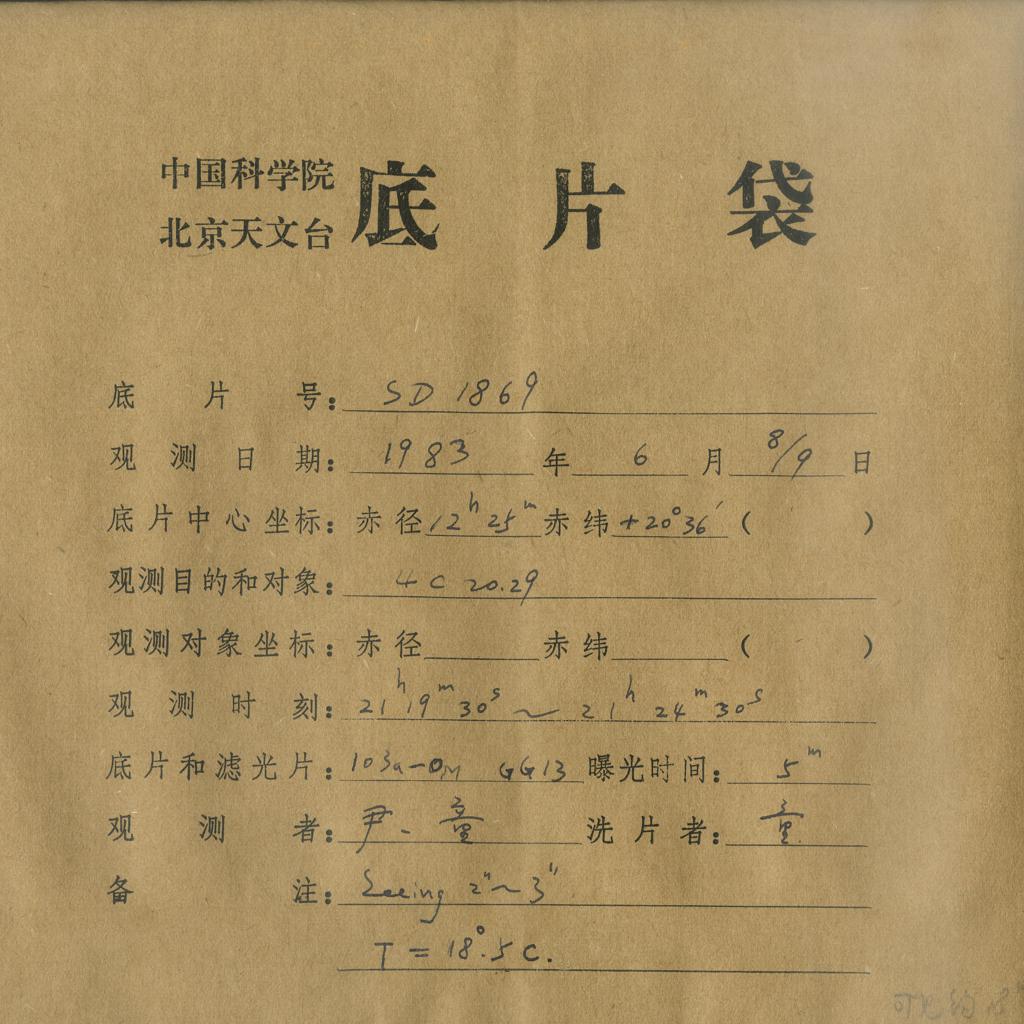 中国科学院
北京天文台
底片袋
底片号: SD 1869
观测日期: 1983 年 6 月 8/9 日
底片中心坐标: 赤径 12ʰ 25ᵐ 赤纬 +20°36′ ( )
观测目的和对象: 4C 20.29
观测对象坐标: 赤径 赤纬 ( )
观测时刻: 21ʰ 19ᵐ 30ˢ ~ 21ʰ 24ᵐ 30ˢ
底片和滤光片: 103a-O GG13 曝光时间: 5ᵐ
观测者: 尹、童 洗片者: 童
备注: Seeing 2"~3"
T = 18°.5 C.
可见约